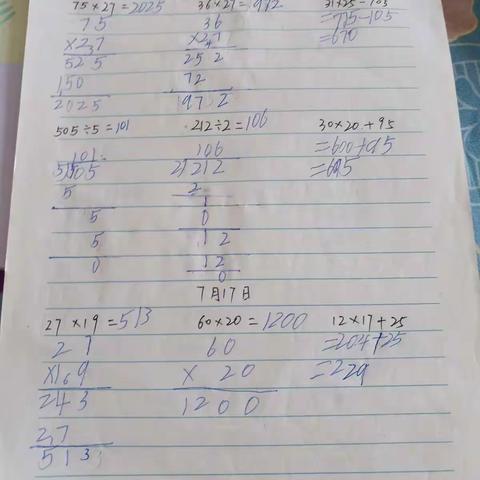 75×27=2025 36×27=972 31×25-105
75 36 =775-105
×27 ×27 =670
525 252
150 72
2025 1972
505÷5=101 212÷2=106 30×20+95
101 106 =600+95
5505 2)212 =695
5 2
5 1
5 0
0 12
12
0
7月17日
27×19=513 60×20=1200 12×17+25
27 60 =204+25
×19 × 20 =229
243 1200
27
513